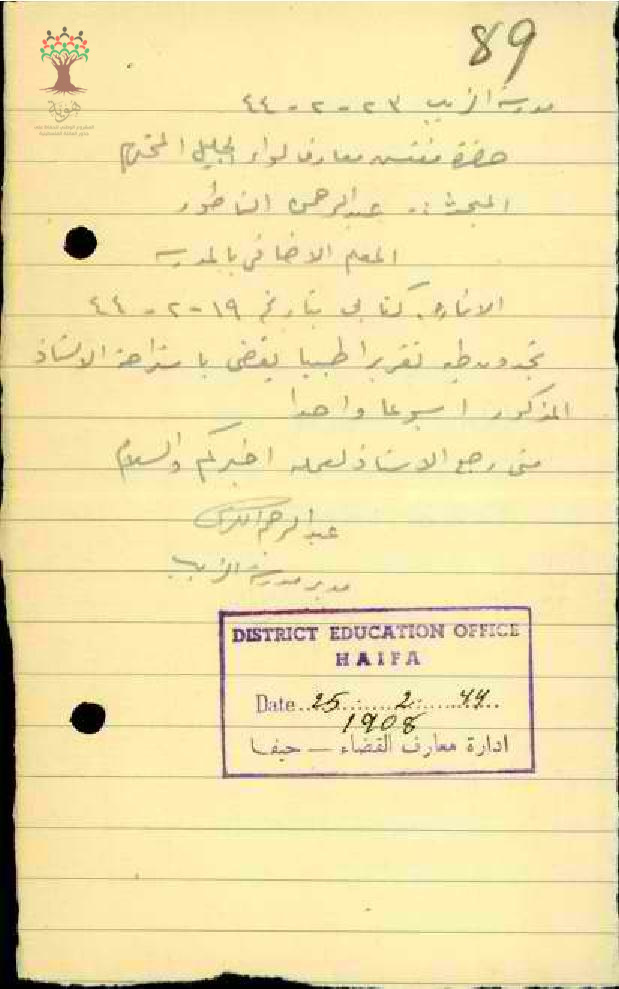 89
مدرسة الزيب ٢٣-٢-٤٤
حضرة مفتش معارف لواء الجليل المحترم
المبحث :- عبدالرحمن الناطور
المعلم الاضافي بالمدرسة
الاشارة: كتابي بتاريخ ١٩-٢-٤٤
تجدون طيه تقريرا طبيا يقضي باستراحة الاستاذ
المذكور اسبوعا واحدا
متى رجع الاستاذ لعمله اخبركم والسلام
عبدالرحمن
مدير مدرسة الزيب
DISTRICT EDUCATION OFFICE
HAIFA
Date 25 2 44
1908
ادارة معارف القضاء — حيفا
هوية